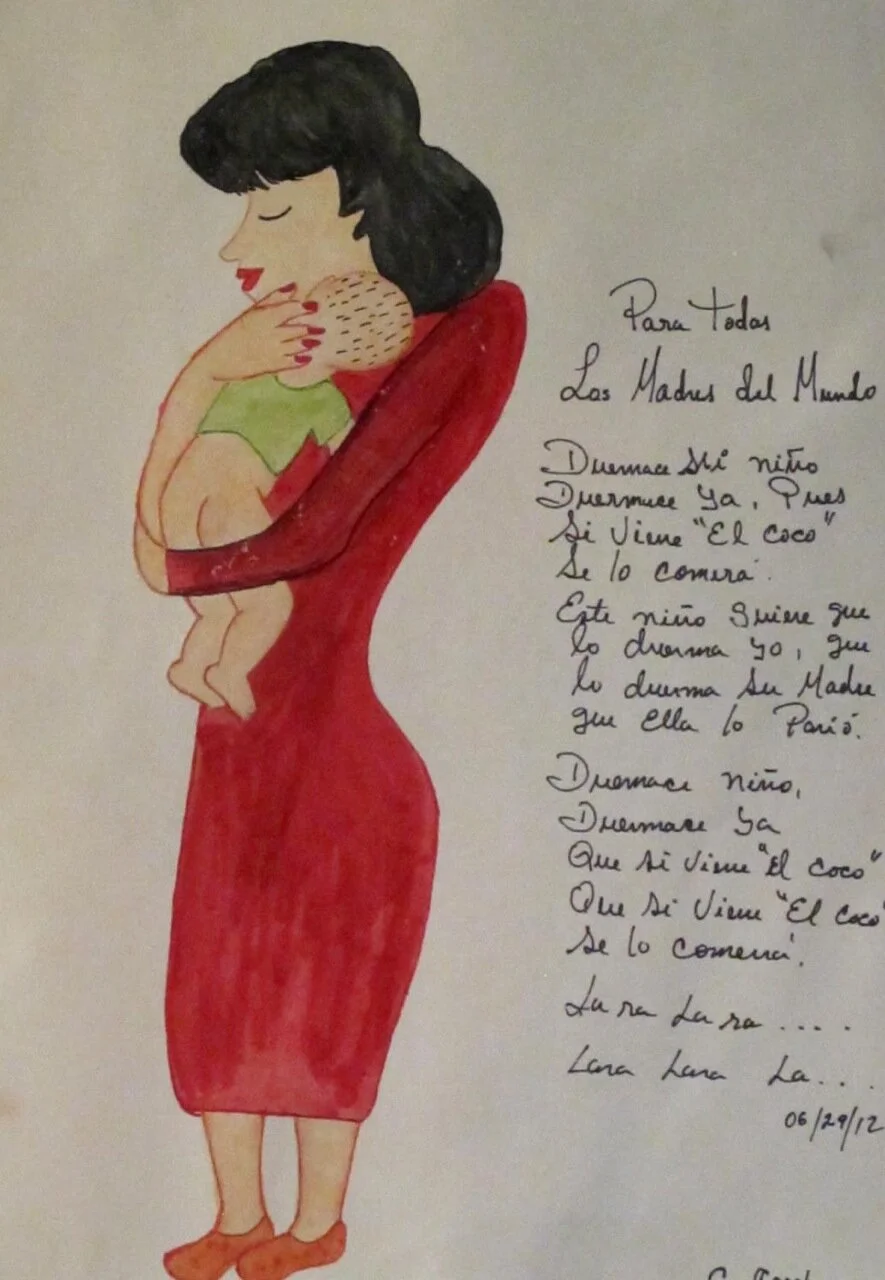 Para Todas
Las Madres del Mundo
Duermace Mi niño
Duermace ya, Pues
Si viene "El Coco"
Se lo comera.
Este niño quiere que
lo duerma yo, que
lo duerma Su Madre
que Ella lo Parió.
Duermace niño,
Duermace ya
Que si viene "El Coco"
Que si viene "El Coco"
Se lo comerá.
La ra La ra ....
Lara Lara La...
06/29/12